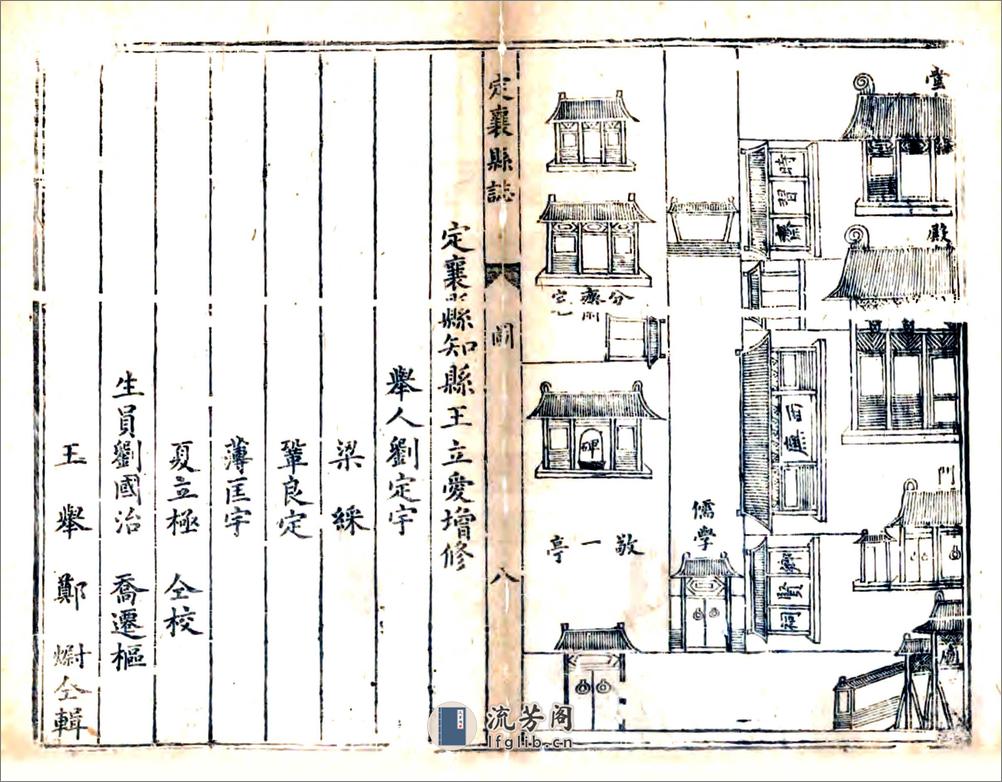 堂
殿
門
時習齋
西廡
鄉賢祠
儒學
分齋宅
碑
敬一亭
定襄縣誌
圖
八
定襄縣知縣王立愛增修
舉人劉定宇
梁綵
鞏良定
薄匡宇
夏立極 仝校
生員劉國治 喬遷樞
王舉 鄭尉 仝輯
流芳阁
lfglib.cn